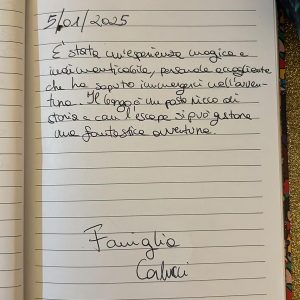 5/01/2025
È stata un'esperienza magica e
indimenticabile, personale accogliente
che ha saputo immergerci nell'avven-
tura. Il borgo è un posto ricco di
storia e con l'escape si può gustare
una fantastica avventura.
Famiglia